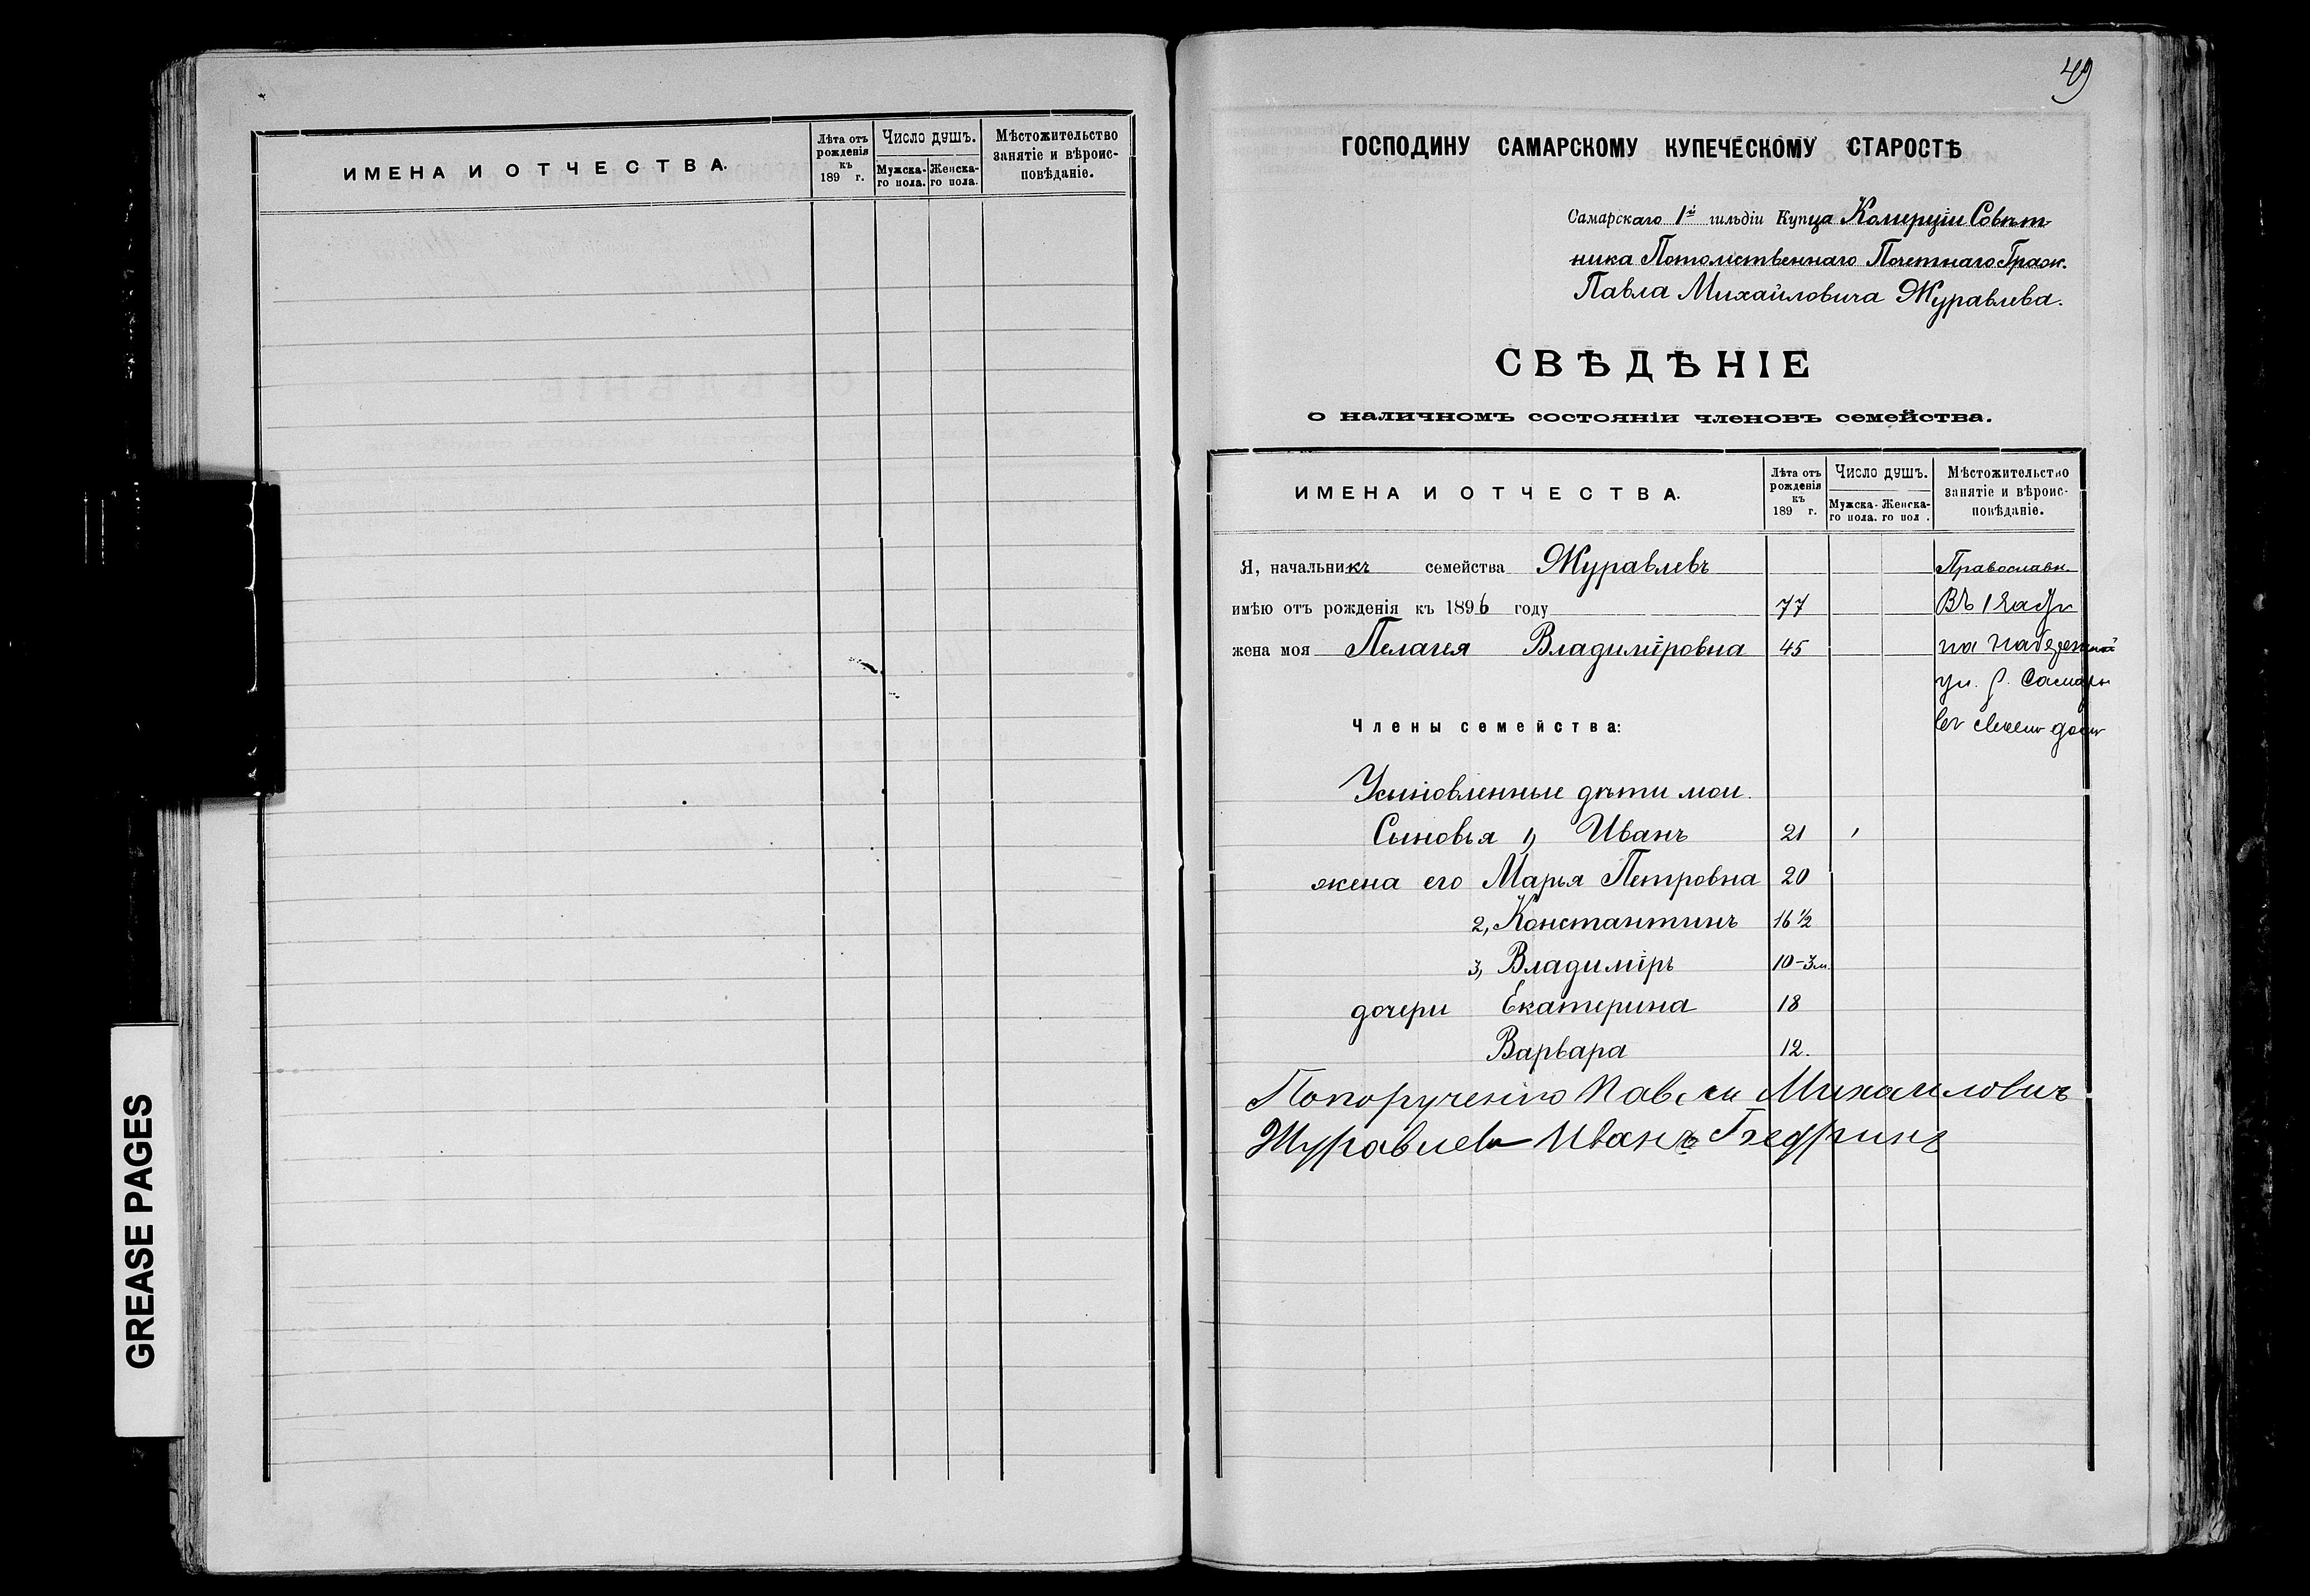 ИМЕНА И ОТЧЕСТВА.
Лѣта отъ рожденія къ 189 г.
Число душъ.
Мужска-го пола.
Женска-го пола.
Мѣстожительство занятіе и вѣроис-повѣданіе.
49
ГОСПОДИНУ САМАРСКОМУ КУПЕЧЕСКОМУ СТАРОСТѢ
Самарскаго 1й гильдіи Купца Комерціи Совѣт-
ника Потомственнаго Почетнаго Граж.
Павла Михайловича Журавлева.
СВѢДѢНІЕ
о наличномъ состояніи членовъ семейства.
ИМЕНА И ОТЧЕСТВА.
Лѣта отъ рожденія къ 189 г.
Число душъ.
Мужска-го пола.
Женска-го пол .
Мѣстожительство занятіе и вѣроис-повѣданіе.
Я, начальникъ семейства Журавлевъ Православн.
имѣю отъ рожденія къ 1896 году 77 Въ 1 части
жена моя Пелагея Владиміровна 45 на набережной
ул. г. Самары
Члены семейства: въ своемъ домѣ
Усыновленные дѣти мои.
Сыновья 1, Иванъ 21 1
жена его Марья Петровна 20
2, Константинъ 16 ½
3, Владиміръ 10-3м.
дочери Екатерина 18
Варвара 12.
Попорученію Павла Михаиловичъ
Журавлева Иванъ